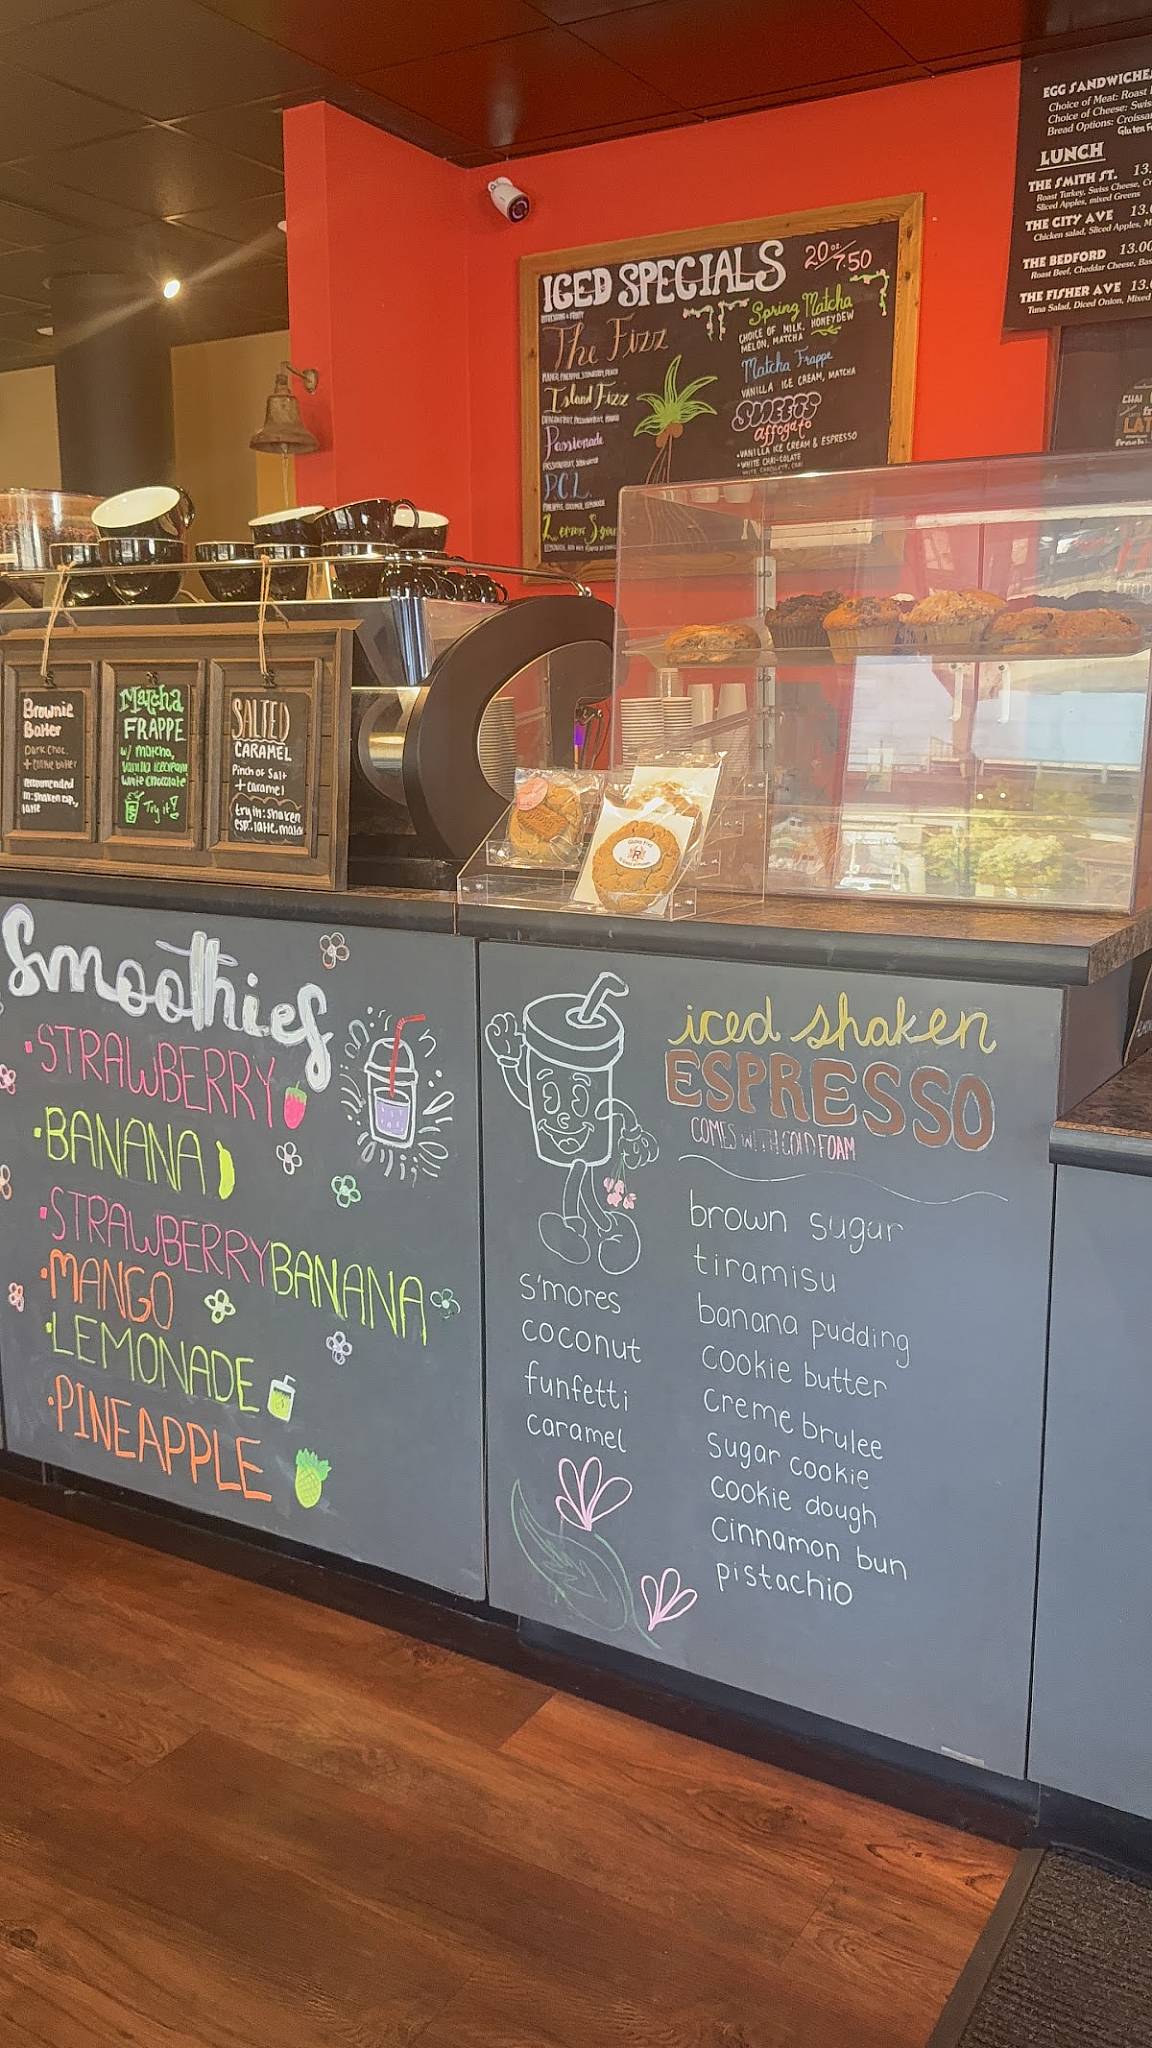 EGG SANDWICHES
Choice of Meat: Roast
Choice of Cheese: Swiss
Bread Options:
LUNCH
THE SMITH ST. 13.
Roast Turkey, Swiss Cheese,
Sliced Apples, mixed Greens
THE CITY AVE 13.
Chicken salad, Sliced Apples,
THE BEDFORD 13.00
Roast Beef, Cheddar Cheese,
THE FISHER AVE 13.
Tuna Salad, Diced Onion, Mixed
CHAI
ICED SPECIALS 20oz/7.50
The Fizz
MANGO, PINEAPPLE, STRAWBERRY, PEACH
Island Fizz
Passionade
P.C.L.
PINEAPPLE, COCONUT, LEMONADE
Spring Matcha
CHOICE OF MILK, HONEYDEW
MELON, MATCHA
Matcha Frappe
VANILLA ICE CREAM, MATCHA
SWEETS
affogato
-VANILLA ICE CREAM & ESPRESSO
•WHITE CHAI-COLATE
WHITE CHOCOLATE, CHAI
Brownie
Batter
Dark Choc.
+ cookie butter
recommended
in: shaken esp.,
latte
Matcha
FRAPPE
w/ matcha,
vanilla icecream
white chocolate
Try it!
SALTED
CARAMEL
Pinch of Salt
+ caramel
try in: shaken
esp. latte, mocha
Smoothies
•STRAWBERRY
•BANANA
•STRAWBERRYBANANA
•MANGO
•LEMONADE
•PINEAPPLE
iced shaken
ESPRESSO
COMES WITH COLD FOAM
s'mores
coconut
funfetti
caramel
brown sugar
tiramisu
banana pudding
cookie butter
creme brulee
sugar cookie
cookie dough
cinnamon bun
pistachio